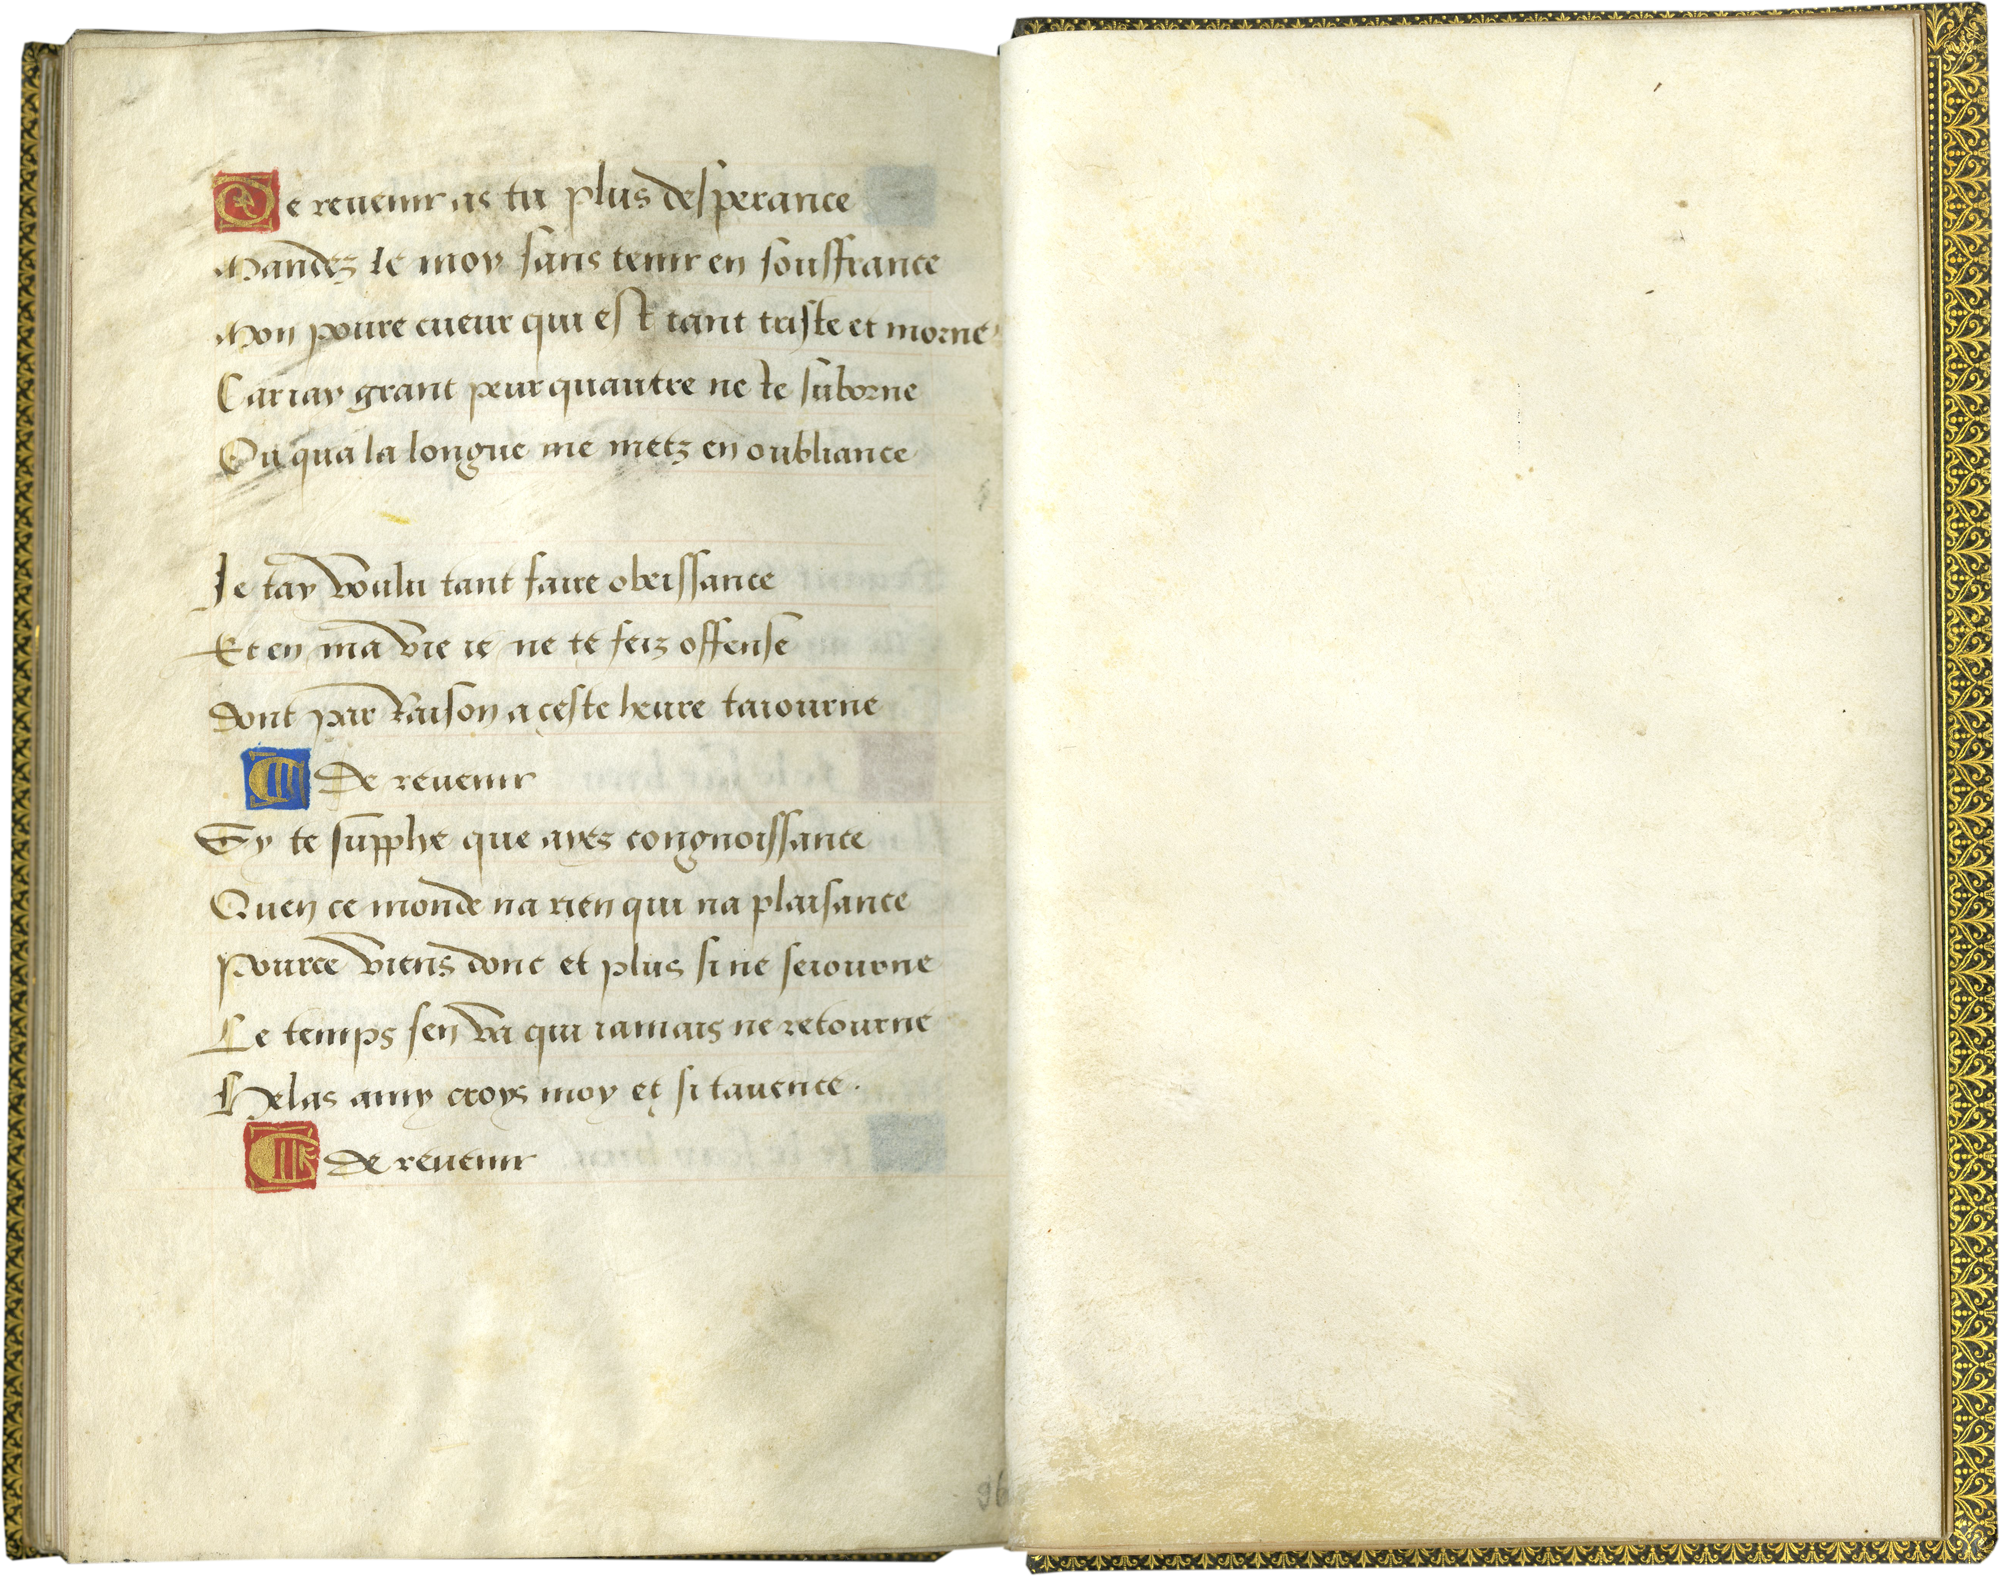 De reuenir as tu plus desperance
Mandez le moy sans tenir en souffrance
Mon poure cueur qui est tant triste et morne
Car iay grant peur quautre ne te suborne
Ou qua la longue me metz en oubliance
Je tay voulu tant faire obeissance
Et en ma vie ie ne te feiz offense
Dont par Raison a ceste heure taiourne
De reuenir
Sy te supplie que ayes congnoissance
Quen ce monde na rien qui na plaisance
Pource viens donc et plus si ne seiourne
Le temps sen va qui iamais ne retourne
Helas amy croys moy et si tauence.
De reuenir
96